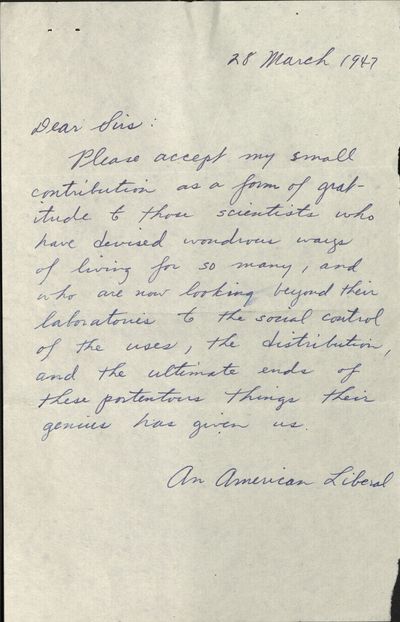 28 March 1947
Dear Sirs:
Please accept my small
contribution as a form of grat-
itude to those scientists who
have devised wondrous ways
of living for so many, and
who are now looking beyond their
laboratories to the social control
of the uses, the distribution,
and the ultimate ends of
these portentous things their
genius has given us.
An American Liberal